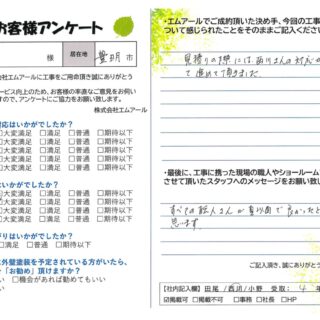 お客様アンケート
様 居在地 豊明 市
会社エムアールに工事をご用命頂き誠にありがとう
ービス向上のため、お客様の率直なご意見をお伺い
すので、アンケートにご協力をお願い致します。
株式会社エムアール
対応はいかがでしたか？
□大変満足 □満足 □普通 □期待以下
□大変満足 □満足 □普通 □期待以下
□大変満足 □満足 □普通 □期待以下
はいかがでしたか？
大変満足 □満足 □普通 □期待以下
大変満足 □満足 □普通 □期待以下
大変満足 □満足 □普通 □期待以下
大変満足 □満足 □普通 □期待以下
がりはいかがでしたか？
□満足 □普通 □期待以下
に外壁塗装を予定されている方がいたら、
を「お勧め」頂けますか？
い □機会があれば勧めてもいい
い
・エムアールでご成約頂いた決め手、今回の工事
ついて感じられたことをそのままご記入ください
見積りの際には、西川さんの対応
て進めて頂けました。
・最後に、工事に携った現場の職人やショールーム
させて頂いたスタッフへのメッセージをお願い致
すべての職人さんが真面目で良かったと
思います。
ご記入頂き、誠にありがとう
【社内記入欄】田尾 /西川 /小野 受取： 4 年
☑掲載可 □掲載不可 □事務 □社長 □HP